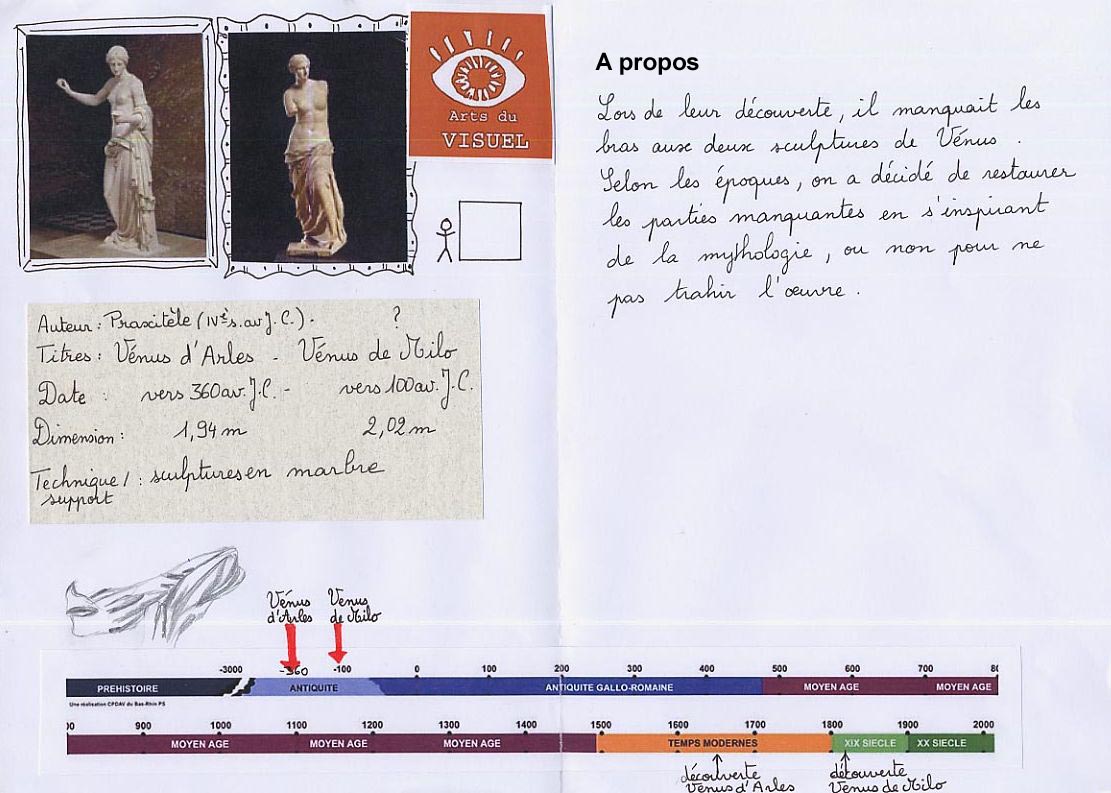 Arts du
VISUEL
Auteur : Praxitèle (IVè s. av J.C.) - ?
Titres : Vénus d'Arles - Vénus de Milo
Date : vers 360 av. J.C. - vers 100 av. J.C.
Dimension : 1,94 m 2,02 m
Technique / : sculptures en marbre
support
A propos
Lors de leur découverte, il manquait les
bras aux deux sculptures de Vénus .
Selon les époques, on a décidé de restaurer
les parties manquantes en s'inspirant
de la mythologie, ou non pour ne
pas trahir l'œuvre .
Vénus Venus
d'Arles de Milo
-3000 -360 -100 0 100 200 300 400 500 600 700 80
PREHISTOIRE ANTIQUITE ANTIQUITE GALLO-ROMAINE MOYEN AGE MOYEN AGE
Une réalisation CPDAV du Bas-Rhin PS
00 900 1000 1100 1200 1300 1400 1500 1600 1700 1800 1900 2000
MOYEN AGE MOYEN AGE MOYEN AGE TEMPS MODERNES XIX SIECLE XX SIECLE
découverte découverte
Vénus d'Arles Venus de Milo